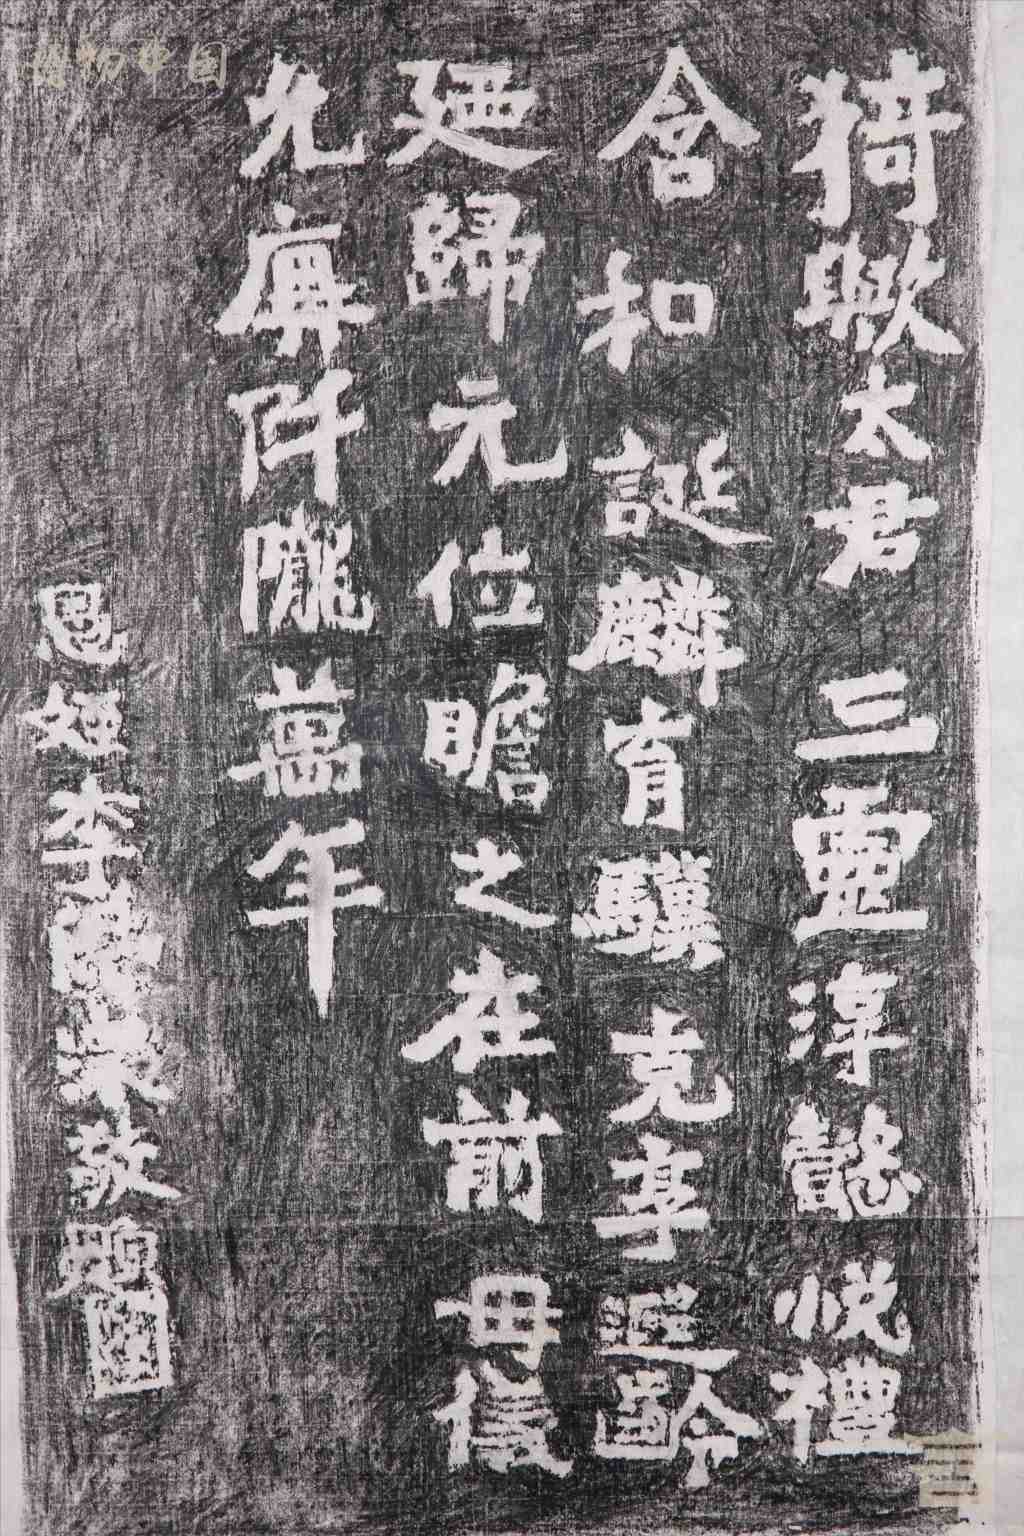 博物中国
猗歟太君三靈淳懿悅禮
含和誕麟育驥克享遐齡
廼歸元位瞻之在前毋儀
允阡隴萬年
恩姪李敬題